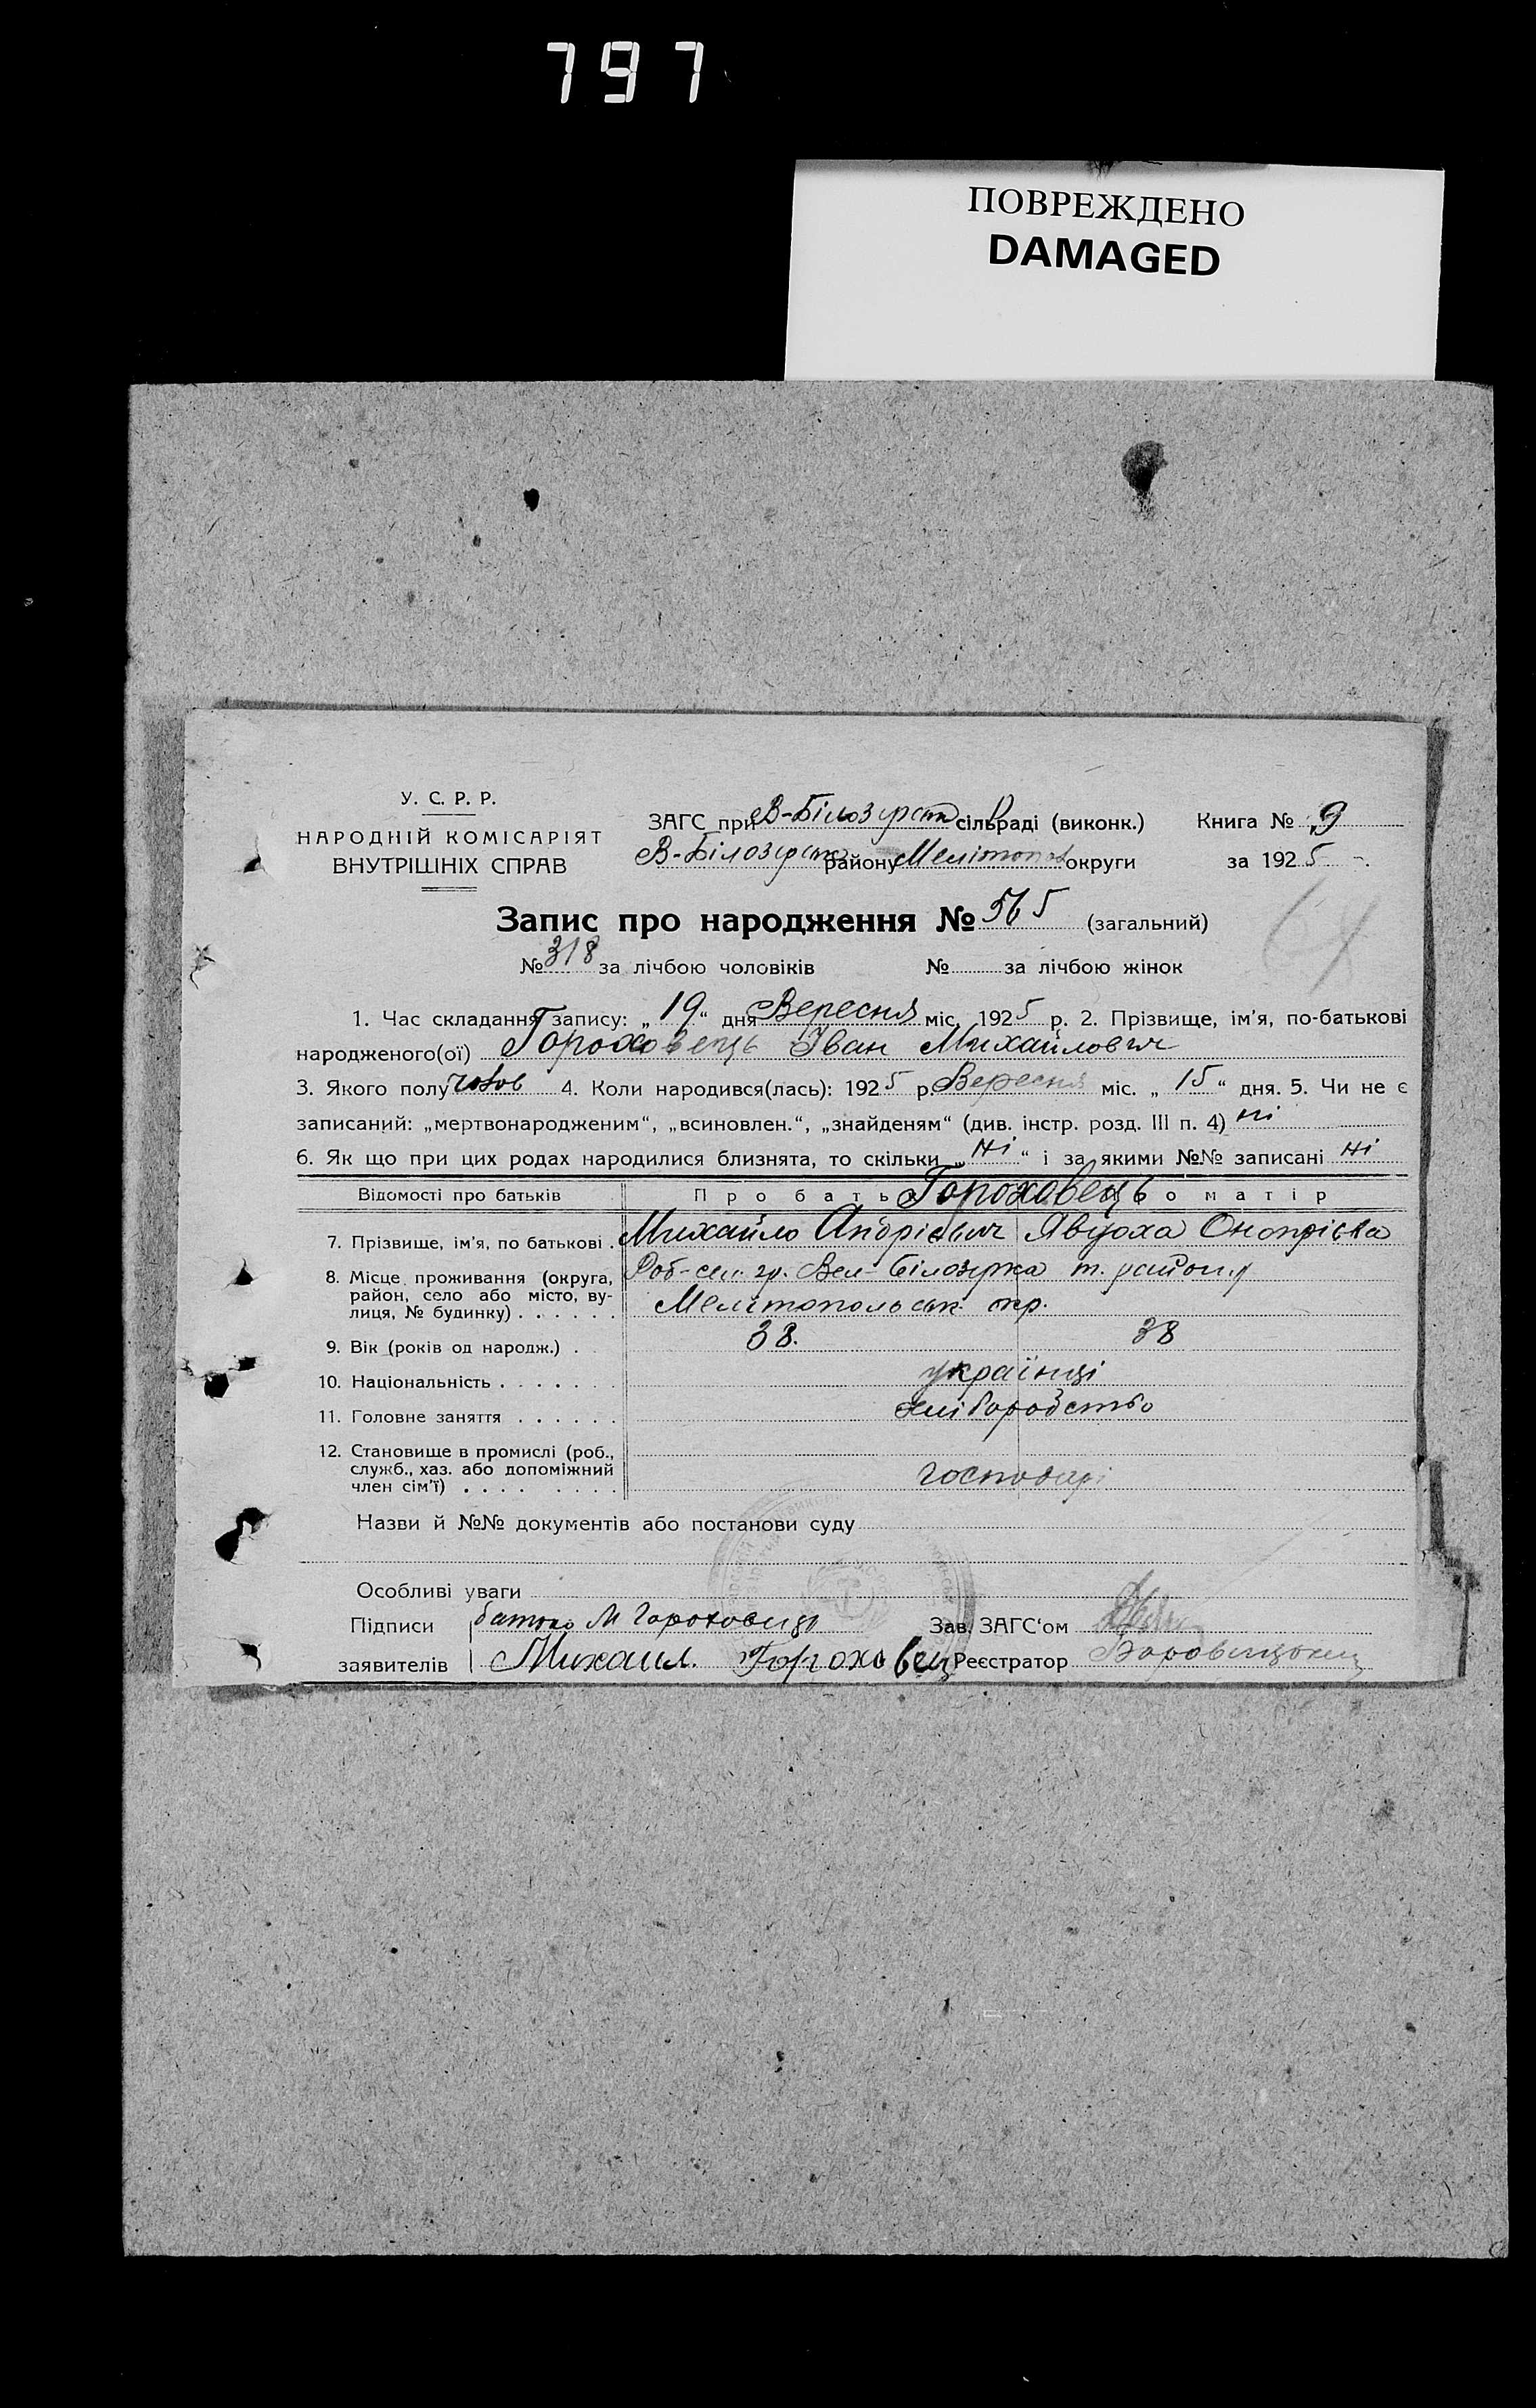 797
ПОВРЕЖДЕНО
DAMAGED
У. С. Р. Р.
НАРОДНІЙ КОМІСАРІЯТ
ВНУТРІШНІХ СПРАВ
ЗАГС при В-Білозірськ сільраді (виконк.) Книга № 9
В-Білозірськ району Мелітопол округи за 1925
Запис про народження № 565 (загальний)
№ 318 за лічбою чоловіків № за лічбою жінок
1. Час складання запису: „19“ дня Вересня міс. 1925 р. 2. Прізвище, ім'я, по-батькові
народженого(ої) Гороховець Іван Михайлович
3. Якого полу чолов 4. Коли народився(лась): 1925 р. Вересня міс. „15“ дня. 5. Чи не є
записаний: „мертвонародженим“, „всиновлен.“, „знайденям“ (див. інстр. розд. III п. 4) ні
6. Як що при цих родах народилися близнята, то скільки „ні“ і за якими №№ записані ні
Відомості про батьків Про бать Гороховець о матір
7. Прізвище, ім'я, по батькові . Михайло Андрієвич Явдоха Онопрієва
8. Місце проживання (округа, район, село або місто, вулиця, № будинку) . . . . . . Роб-сел. гр. Вел-Білозірка т. району
Мелітопольськ окр.
9. Вік (років од народж.) . 38. 38
10. Національність . . . . . . . українці
11. Головне заняття . . . . . . хліборобство
12. Становище в промислі (роб., служб., хаз. або допоміжний член сім'ї) . . . . . . . . господарі
Назви й №№ документів або постанови суду
Особливі уваги
Підписи батько М Гороховець Зав. ЗАГС‘ом
заявителів Михаил. Гороховец Реєстратор